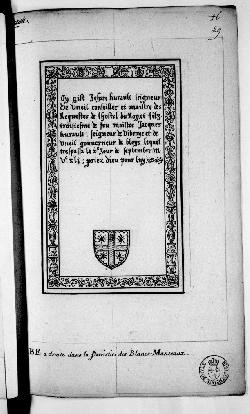 Cy gist Jehan hurault seigneur
De Vueil conseiller et maistre des
Requestes de lhostel du Roy filz
troisiesme de feu maistre Jacques
hurault seigneur de Vibraye et de
Vueil gouverneur de bloys lequel
trespassa le Xe Jour de septembre M
Vc xli priez dieu pour luy
a droite dans le des Blancs Manteaux